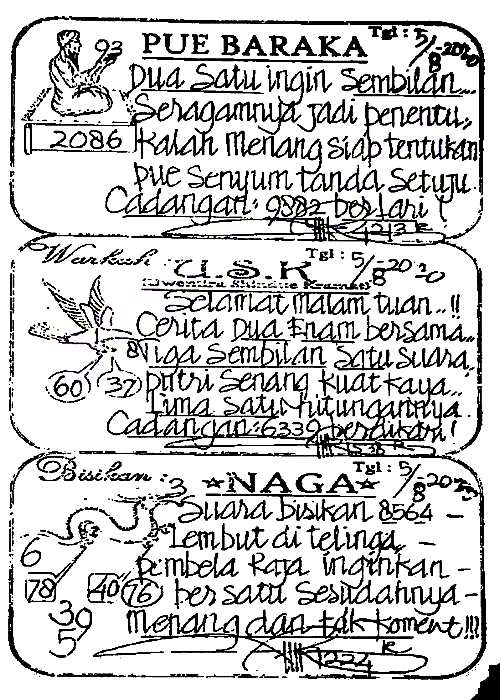 PUE BARAKA
Tgl : 5/8-2020
93
2086
Dua Satu ingin Sembilan...
Seragamnya jadi penentu..
Kalah Menang siap tentukan
Pue Senyum tanda Setuju.
Cadangan: 9382 berlari !
1213 K
Warkah
U.S.K
Tgl : 5/8-2020
Selamat malam tuan..!!
Cerita Dua Enam bersama..
Tiga Sembilan Satu suara.
60 37
putri Senang kuat kaya..
Lima Satu hitungannya.
Cadangan: 6339 berdikari !
1538 K
Bisikan :
3
NAGA
Tgl : 5/8-2020
Suara bisikan 8564 -
Lembut di telinga -
pembela Raja inginkan -
6
78 40 76
bersatu Sesudahnya -
39
5
Menang dan tak koment !!!
1224 K